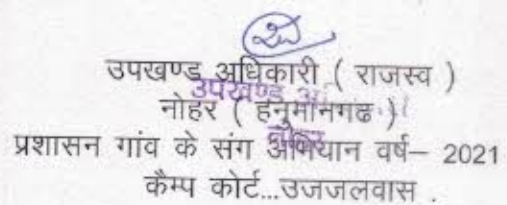 उपखण्ड अधिकारी ( राजस्व )
नोहर ( हनुमानगढ )
प्रशासन गांव के संग अभियान वर्ष– 2021
कैम्प कोर्ट...उजजलवास .